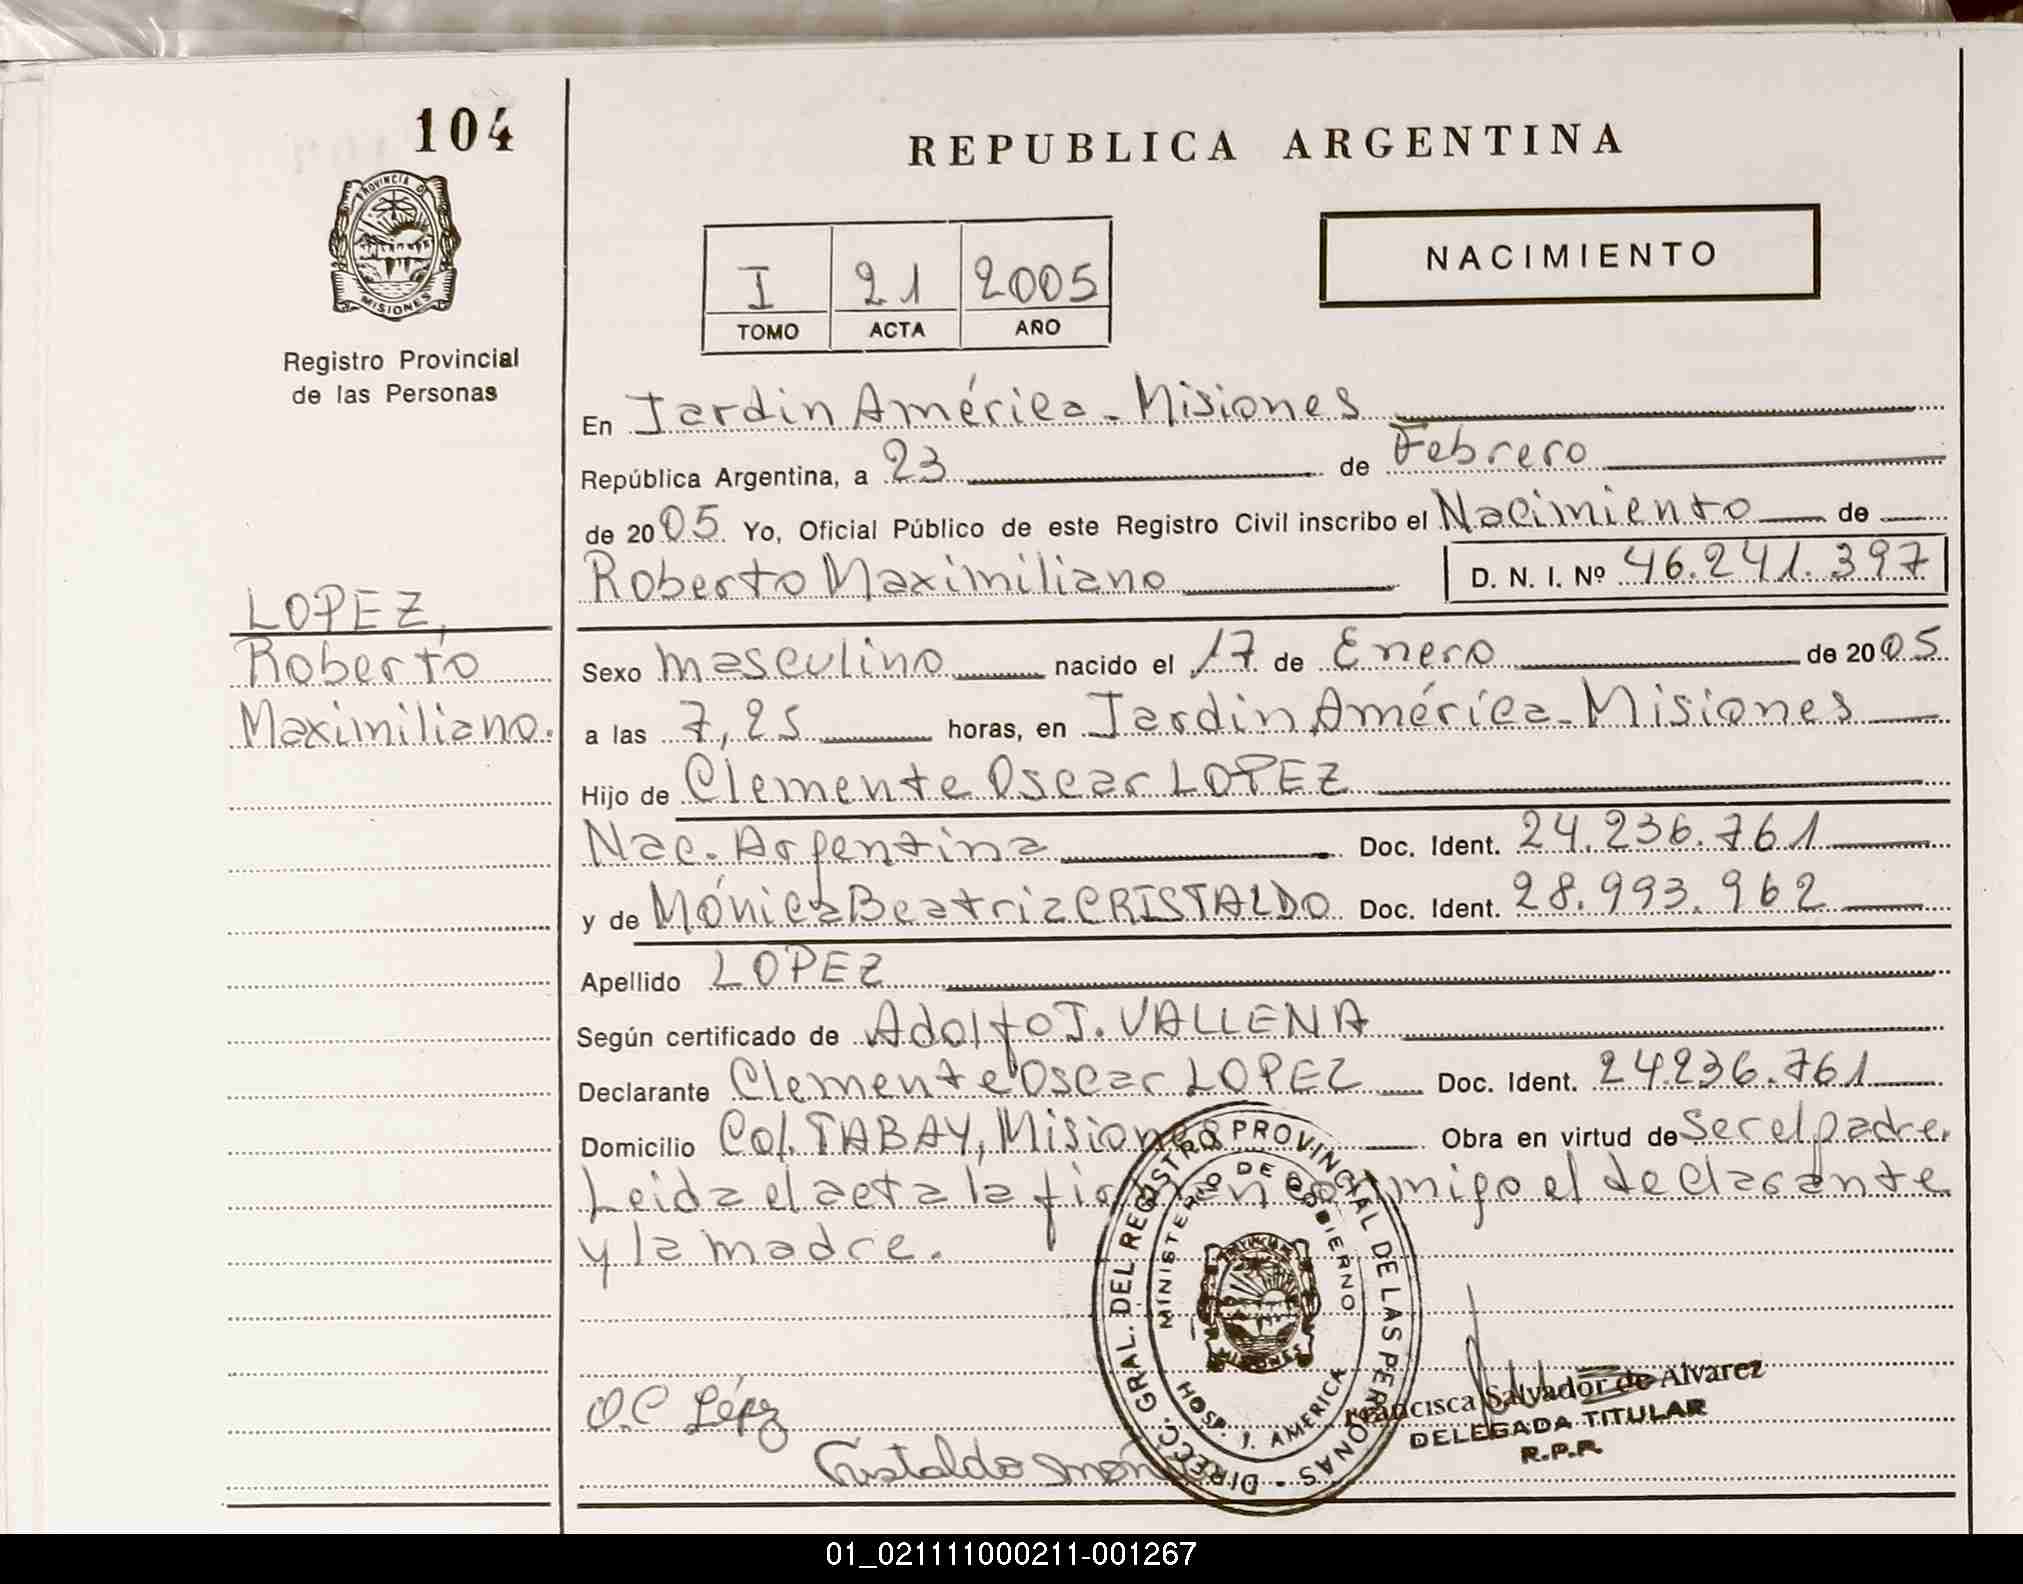 104
REPUBLICA ARGENTINA
PROVINCIA DE
MISIONES
NACIMIENTO
I 21 2005
TOMO ACTA AÑO
Registro Provincial
de las Personas
En Jardin América - Misiones
República Argentina, a 23 de Febrero
de 2005 Yo, Oficial Público de este Registro Civil inscribo el Nacimiento de
Roberto Maximiliano D. N. I. Nº 46.241.397
LOPEZ,
Roberto
Maximiliano.
Sexo masculino nacido el 17 de Enero de 2005
a las 7,25 horas, en Jardin América - Misiones
Hijo de Clemente Oscar LOPEZ
Nac. Argentina Doc. Ident. 24.236.761
y de Mónica Beatriz CRISTALDO Doc. Ident. 28.993.962
Apellido LOPEZ
Según certificado de Adolfo J. VALLENA
Declarante Clemente Oscar LOPEZ Doc. Ident. 24.236.761
Domicilio Col. TABAY, Misiones Obra en virtud de ser el padre.
Leida el acta la firman conmigo el declarante
y la madre.
DIRECC. GRAL. DEL REGISTRO PROVINCIAL DE LAS PERSONAS -
MINISTERIO DE GOBIERNO
PROVINCIA DE
MISIONES
HOSP. J. AMERICA
O.C López
Cristaldo
Francisca Salvador de Alvarez
DELEGADA TITULAR
R.P.P.
01_021111000211-001267